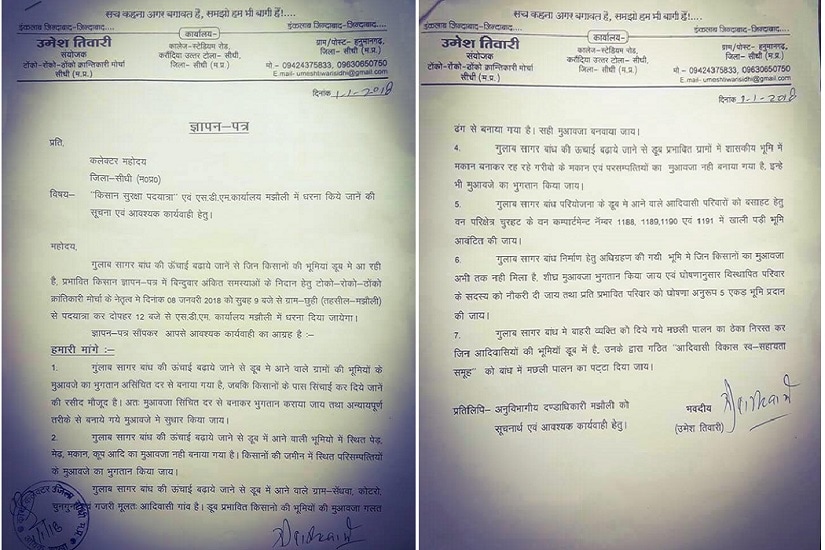 सच कहना अगर बगावत है, समझो हम भी बागी हैं!....
इंकलाब जिन्दाबाद-जिन्दाबाद.....
कार्यालय-
इंकलाब जिन्दाबाद-जिन्दाबाद.....
उमेश तिवारी
संयोजक
टोंको-रोंको-ठोंको क्रान्तिकारी मोर्चा
सीधी (म.प्र.)
कालेज-स्टेडियम रोड,
करौंदिया उत्तर टोला - सीधी,
जिला- सीधी (म.प्र.)
ग्राम/पोस्ट- हनुमानगढ़,
जिला- सीधी (म.प्र.)
मो.- 09424375833, 09630650750
E.mail- umeshtiwarisidhi@gmail.com
दिनांक 1-1-2018
ज्ञापन-पत्र
प्रति,
कलेक्टर महोदय
जिला-सीधी (म०प्र०)
विषय- "किसान सुरक्षा पदयात्रा" एवं एस.डी.एम.कार्यालय मझौली में धरना किये जानें की
सूचना एवं आवश्यक कार्यवाही हेतु।
महोदय,
गुलाब सागर बांध की ऊंचाई बढाये जाने से जिन किसानों की भूमियां डूब मे आ रही
है, प्रभावित किसान ज्ञापन-पत्र में बिन्दुवार अंकित समस्याओं के निदान हेतु टोको-रोको-ठोंको
क्रांतिकारी मोर्चा के नेतृत्व मे दिनांक 08 जनवरी 2018 को सुबह 9 बजे से ग्राम-छुही (तहसील-मझौली)
से पदयात्रा कर दोपहर 12 बजे से एस.डी.एम. कार्यालय मझौली में धरना दिया जायेगा।
ज्ञापन-पत्र सौंपकर आपसे आवश्यक कार्यवाही का आग्रह है :-
हमारी मांगे :-
1. गुलाब सागर बांध की ऊंचाई बढाये जाने से डूब मे आने वाले ग्रामों की भूमियों के
मुआवजे का भुगतान असिंचित दर से बनाया गया है, जबकि किसानों के पास सिंचाई कर दिये जाने
की रसीद मौजूद है। अतः मुआवजा सिंचित दर से बनाकर भुगतान कराया जाय तथा अन्यायपूर्ण
तरीके से बनाये गये मुआवजे मे सुधार किया जाय।
2. गुलाब सागर बांध की ऊंचाई बढाये जाने से डूब में आने वाली भूमियो में स्थित पेड़,
मेढ, मकान, कूप आदि का मुआवजा नही बनाया गया है। किसानों की जमीन में स्थित परिसम्पत्तियों
के मुआवजे का भुगतान किया जाय।
गुलाब सागर बांध की ऊंचाई बढाये जाने से डूब में आने वाले ग्राम-सेंधवा, कोटरो,
गजरी मूलतः आदिवासी गांव है। डूब प्रभावित किसानो की भूमियों की मुआवजा गलत
सच कहना अगर बगावत है, समझो हम भी बागी हैं!....
इंकलाब जिन्दाबाद-जिन्दाबाद.....
कार्यालय-
इंकलाब जिन्दाबाद-जिन्दाबाद.....
उमेश तिवारी
संयोजक
टोंको-रोंको-ठोंको क्रान्तिकारी मोर्चा
सीधी (म.प्र.)
कालेज-स्टेडियम रोड,
करौंदिया उत्तर टोला - सीधी,
जिला- सीधी (म.प्र.)
ग्राम/पोस्ट- हनुमानगढ़,
जिला- सीधी (म.प्र.)
मो.- 09424375833, 09630650750
E.mail- umeshtiwarisidhi@gmail.com
दिनांक 1-1-2018
ढंग से बनाया गया है। सही मुआवजा बनवाया जाय।
4. गुलाब सागर बांध की ऊंचाई बढाये जाने से डूब प्रभावित ग्रामों में शासकीय भूमि में
मकान बनाकर रह रहे गरीबो के मकान एवं परसम्पत्तियों का मुआवजा नही बनाया गया है, इन्हे
भी मुआवजे का भुगतान किया जाय।
5. गुलाब सागर बांध परियोजना के डूब मे आने वाले आदिवासी परिवारों को बसाहट हेतु
वन परिक्षेत्र चुरहट के वन कम्पार्टमेन्ट नेंम्बर 1188, 1189,1190 एवं 1191 में खाली पड़ी भूमि
आबंटित की जाय।
6. गुलाब सागर बांध निर्माण हेतु अधिग्रहण की गयी भूमि मे जिन किसानों का मुआवजा
अभी तक नही मिला है, शीघ्र मुआवजा भुगतान किया जाय एवं घोषणानुसार विस्थापित परिवार
के सदस्य को नौकरी दी जाय तथा प्रति प्रभावित परिवार को घोषणा अनुरूप 5 एकड़ भूमि प्रदान
की जाय।
7. गुलाब सागर बांध मे बाहरी व्यक्ति को दिये गये मछली पालन का ठेका निरस्त कर
जिन आदिवासियों की भूमियों डूब में है, उनके द्वारा गठित "आदिवासी विकास स्व-सहायता
समूह" को बांध में मछली पालन का पट्टा दिया जाय।
प्रतिलिपि- अनुविभागीय दण्डाधिकारी मझौली को
सूचनार्थ एवं आवश्यक कार्यवाही हेतु।
भवदीय
(उमेश तिवारी)